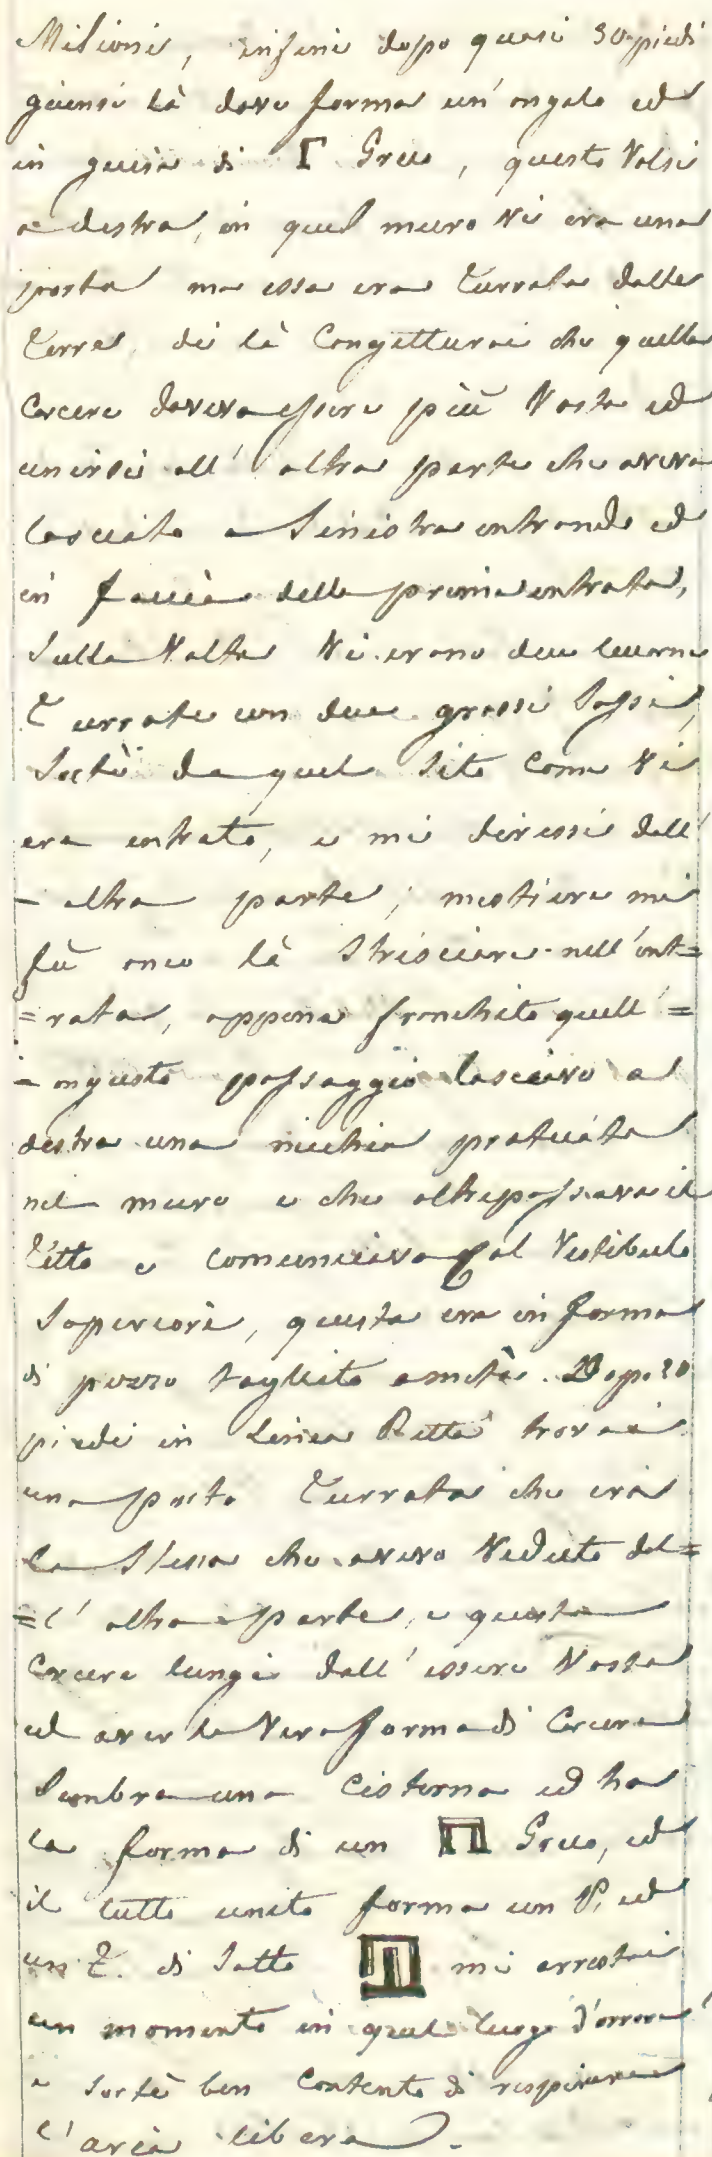 Milioni, infine dopo quasi 30 piedi
giunsi là dove forma un'angolo ed
in guisa di Γ Greco, questo Volsi
a destra, in quel muro Vi era una
porta ma essa era Turrata dalle
Terre, di là Congetturai che quella
Carcere doveva essere più Vasta ed
unirsi all' altra parte che aveva
lasciato a Sinistra entrando ed
in faccia della prima entrata,
Sulla Volta Vi erano due lucerne
Turrate con due grossi Sassi,
Sortì da quel Sito Come Vi
era entrato, e mi diressi dall'
- altra parte; mestiere mi
fù anco là Strisciare nell'ent=
=rata, appena franchito quell'=
=angusto passaggio lasciavo a
destra una nicchia praticata
nel muro e che oltrepassava il
Titto e comunicava al Vestibulo
Superiore, questa era in forma
di pozzo tagliato a metà. Dopo 20
piedi in Linea Retta trovai
una porta Turrata che era
la Stessa che avevo Veduto del=
=l' altra parte, e questa
Carcere lungi dall' essere Vasta
ed aver la Vera forma di Carcere
Sembra una Cisterna ed ha
la forma di un Π Greco, ed
il tutto unito forma un P, ed
un T. di Sotto mi arrestai
un momento in quel luogo d'orrore
e Sortì ben Contento di respirare
l'aria libera.